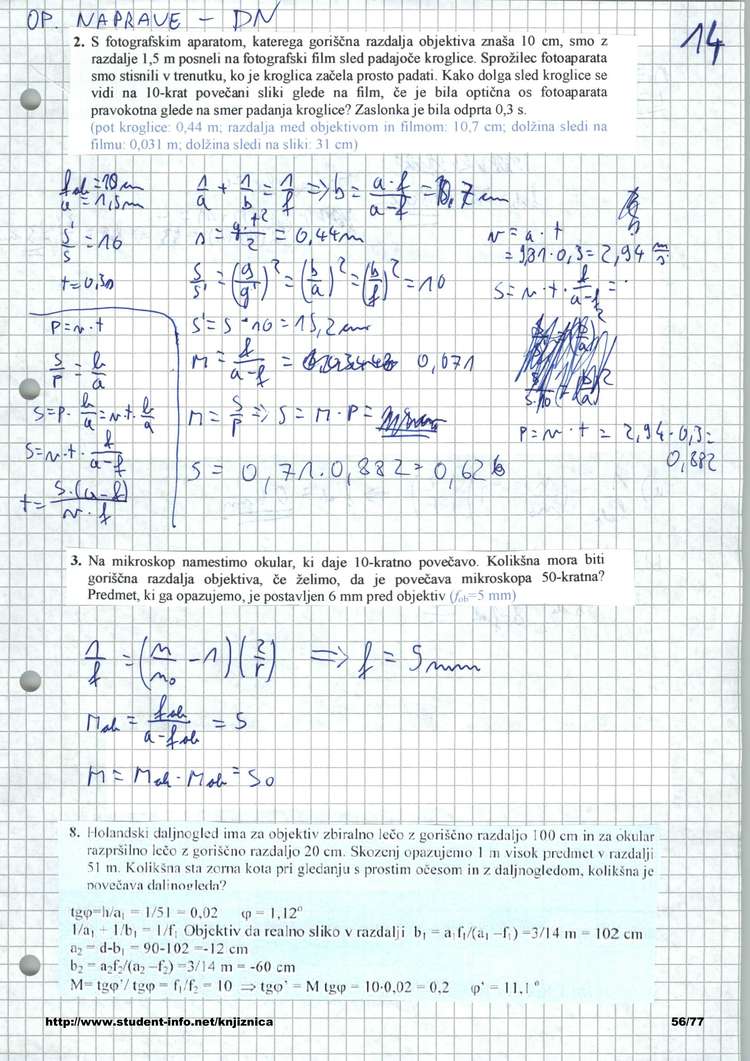 OP. NAPRAVE - DN
14
2. S fotografskim aparatom, katerega goriščna razdalja objektiva znaša 10 cm, smo z
razdalje 1,5 m posneli na fotografski film sled padajoče kroglice. Sprožilec fotoaparata
smo stisnili v trenutku, ko je kroglica začela prosto padati. Kako dolga sled kroglice se
vidi na 10-krat povečani sliki glede na film, če je bila optična os fotoaparata
pravokotna glede na smer padanja kroglice? Zaslonka je bila odprta 0,3 s.
(pot kroglice: 0,44 m; razdalja med objektivom in filmom: 10,7 cm; dolžina sledi na
filmu: 0,031 m; dolžina sledi na sliki: 31 cm)
f_ob = 10 cm
a = 1,5 m
s'/s = 10
t = 0,3s
1/a + 1/b = 1/f => b = a·f/(a-f) = 10,7 cm
s = g·t²/2 = 0,44 m
s/s' = (g/g')² = (b/a)² = (b/f)² = 10
s' = s · 10 = 15,2 cm
M = f/(a-f) = 0,071
M = s/P => s = M · P =
s = 0,71 · 0,882 = 0,626
v = a · t
= 9,81 · 0,3 = 2,94 m/s
s = v · t · f/(a-f) =
P = v · t = 2,94 · 0,3 =
0,882
P = v · t
s/P = b/a
s = P · b/a = v · t · b/a
s = v · t · f/(a-f)
t = s·(a-f)/(v·f)
3. Na mikroskop namestimo okular, ki daje 10-kratno povečavo. Kolikšna mora biti
goriščna razdalja objektiva, če želimo, da je povečava mikroskopa 50-kratna?
Predmet, ki ga opazujemo, je postavljen 6 mm pred objektiv (f_ob=5 mm)
1/f = (n/n₀ - 1)(2/r) => f = 5 mm
M_ob = f_ob/(a-f_ob) = 5
M = M_ok · M_ob = 50
8. Holandski daljnogled ima za objektiv zbiralno lečo z goriščno razdaljo 100 cm in za okular
razpršilno lečo z goriščno razdaljo 20 cm. Skozenj opazujemo 1 m visok predmet v razdalji
51 m. Kolikšna sta zorna kota pri gledanju s prostim očesom in z daljnogledom, kolikšna je
povečava daljnogleda?
tgφ=h/a₁ = 1/51 = 0,02 φ = 1,12°
1/a₁ + 1/b₁ = 1/f₁ Objektiv da realno sliko v razdalji b₁ = a₁f₁/(a₁ –f₁) =3/14 m = 102 cm
a₂ = d-b₁ = 90-102 =-12 cm
b₂ = a₂f₂/(a₂ –f₂) =3/14 m = -60 cm
M= tgφ'/ tgφ = f₁/f₂ = 10 ⇒ tgφ' = M tgφ = 10·0,02 = 0,2 φ' = 11,1 °
http://www.student-info.net/knjiznica
56/77